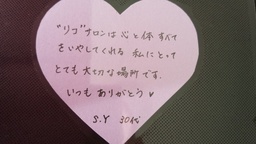 "リゴ"サロンは心と体すべて
をいやしてくれる 私にとって
とても大切な場所です。
いつもありがとう♥
S.Y 30代